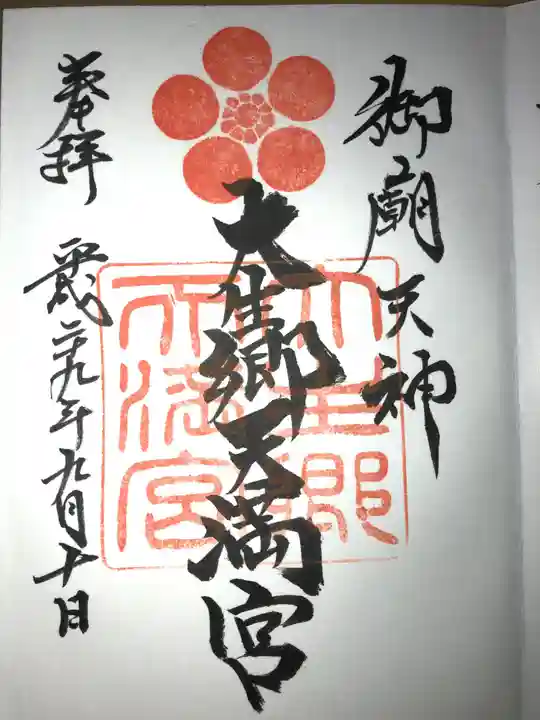 御廟天神
大生郷天満宮
大生郷
天満宮
奉拝
平成二十九年九月十日